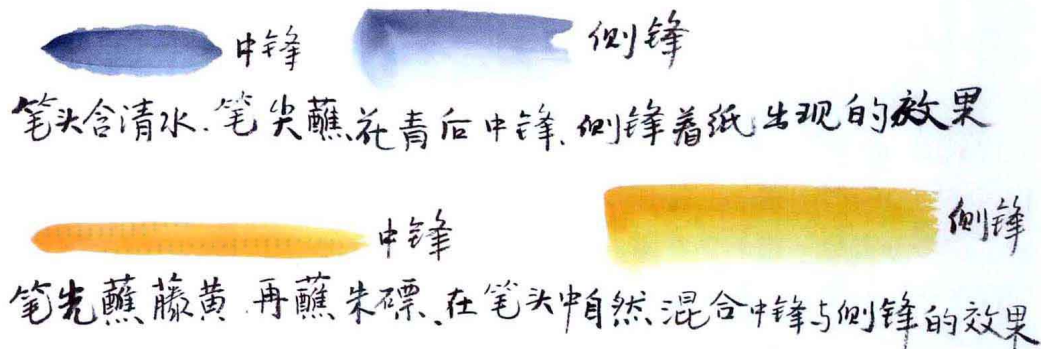 中锋 侧锋
笔头含清水.笔尖蘸花青后中锋、侧锋着纸出现的效果
中锋 侧锋
笔先蘸藤黄 再蘸朱磦、在笔头中自然混合中锋与侧锋的效果